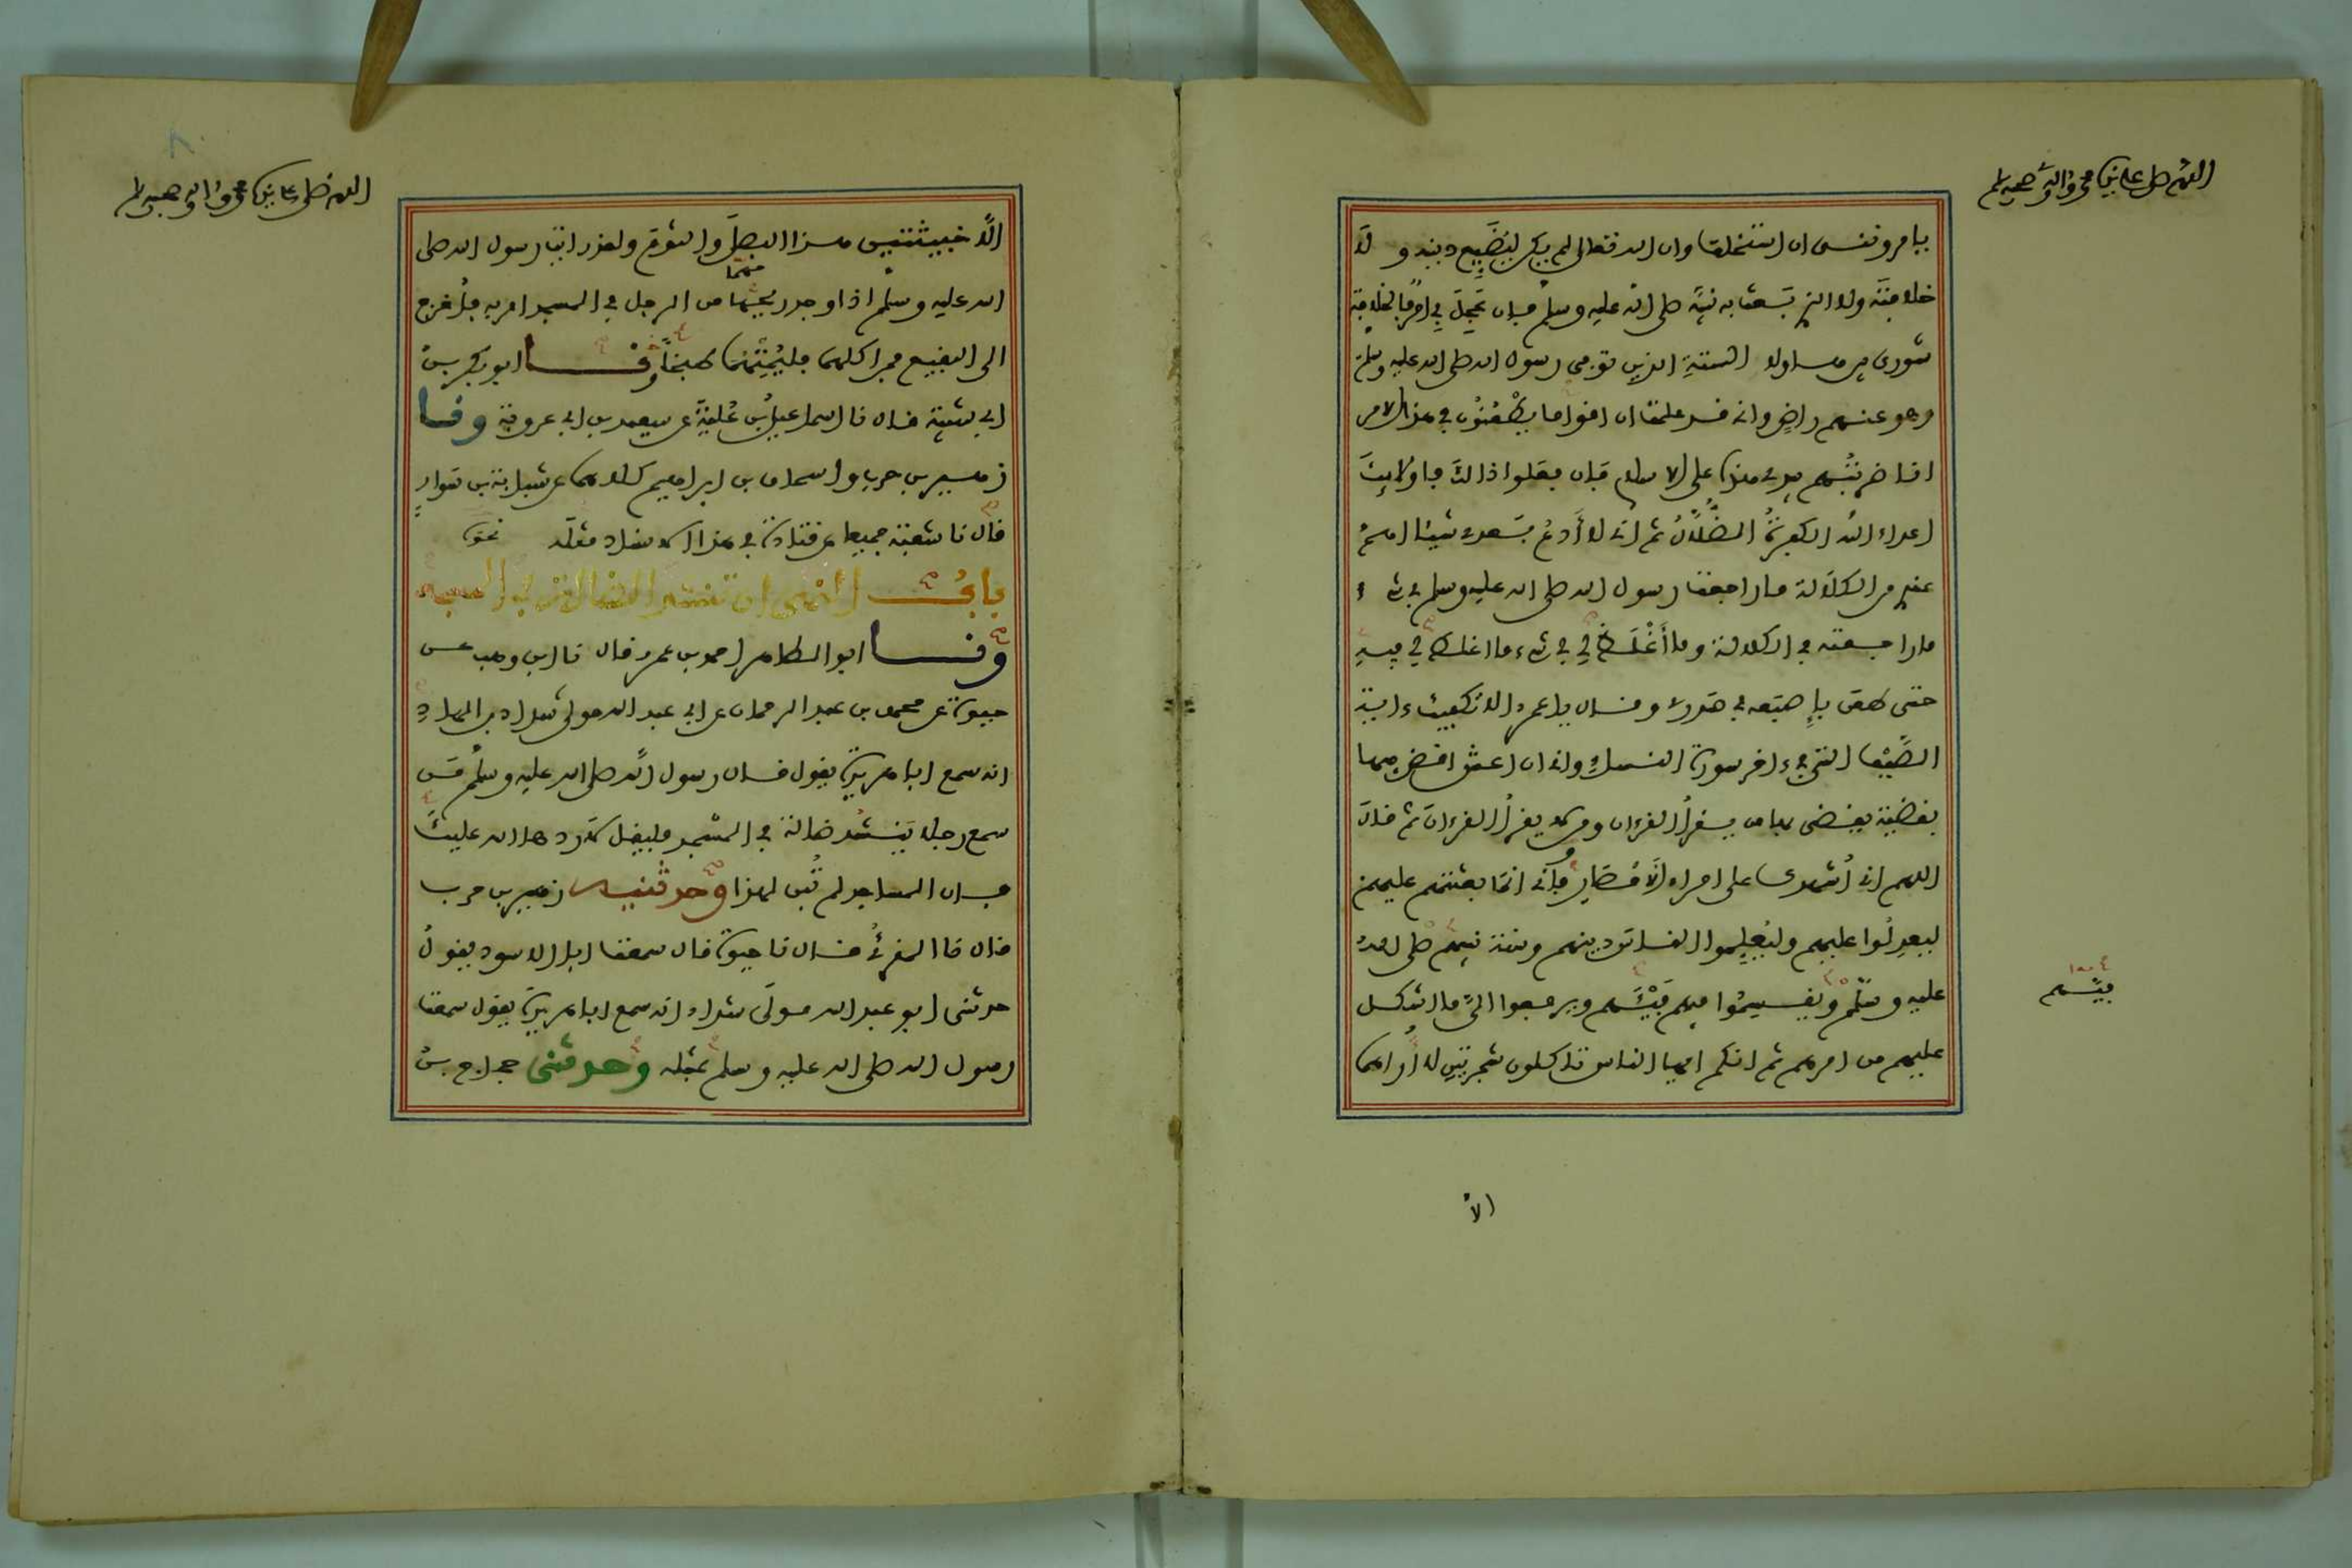 اللهم صل على نبينا محمد وآله وصحبه وسلم
يامروننى ان استخلف وان الله تعالى لم يكن ليضيع دينه ولا
خلافته ولا الذي بعث به نبيه صلى الله عليه وسلم فإن عجل بي امر فالخلافة
شورى بين هاولاء الستة الذين توفي رسول الله صلى الله عليه وسلم
وهو عنهم راض واني قد علمت ان اقواما يطعنون في هذا الامر
انا ضربتهم بيدي هذه على الاسلام فإن فعلوا ذالك فاولائك
اعداء الله الكفرة الضلال ثم اني لا أدع بعدي شيئا اهم
عندي من الكلالة ما راجعت رسول الله صلى الله عليه وسلم في شيء
ما راجعته في الكلالة وما أغلظ لي في شيء ما اغلظ لي فيه
حتى طعن بإصبعه في صدري وقال يا عمر الا تكفيك ءاية
الصيف التي في ءاخر سورة النساء واني ان اعش اقض فيها
بقضية يقضي بها من يقرأ القرءان ومن لا يقرأ القرءان ثم قال
اللهم اني أشهدك على امراء الأمصار وإني انما بعثتهم عليهم
ليعدلوا عليهم وليعلموا الناس دينهم وسنة نبيهم صلى الله
عليه وسلم ويقسموا فيهم فيئهم ويرفعوا الي ما اشكل
فيئهم
عليهم من امرهم ثم انكم ايها الناس تاكلون شجرتين لا أراهما
الا
اللهم صل على نبينا محمد وآله وصحبه وسلم
الا خبيثتين هذا البصل والثوم ولقد رايت رسول الله صلى
الله عليه وسلم اذا وجد ريحهما من الرجل في المسجد امر به فأخرج
الى البقيع فمن اكلهما فليمتهما طبخا ونا ابو بكر بن
ابي شيبة قال نا اسماعيل بن علية عن سعيد بن ابي عروبة ونا
زهير بن حرب واسحاق بن ابراهيم كلاهما عن شبابة بن سوار
قال نا شعبة جميعا عن قتادة في هذا الاسناد مثله نحوه
باب النهي ان تنشد الضالة في المسجد
ونا ابو الطاهر احمد بن عمرو قال نا ابن وهب عن
حيوة عن محمد بن عبد الرحمان عن ابي عبد الله مولى شداد بن الهاد
انه سمع ابا هريرة يقول قال رسول الله صلى الله عليه وسلم من
سمع رجلا ينشد ضالة في المسجد فليقل لا ردها الله عليك
فإن المساجد لم تبن لهذا وحدثنيه زهير بن حرب
قال نا المقرئ قال نا حيوة قال سمعت ابا الاسود يقول
حدثني ابو عبد الله مولى شداد انه سمع ابا هريرة يقول سمعت
رسول الله صلى الله عليه وسلم بمثله وحدثني حجاج بن